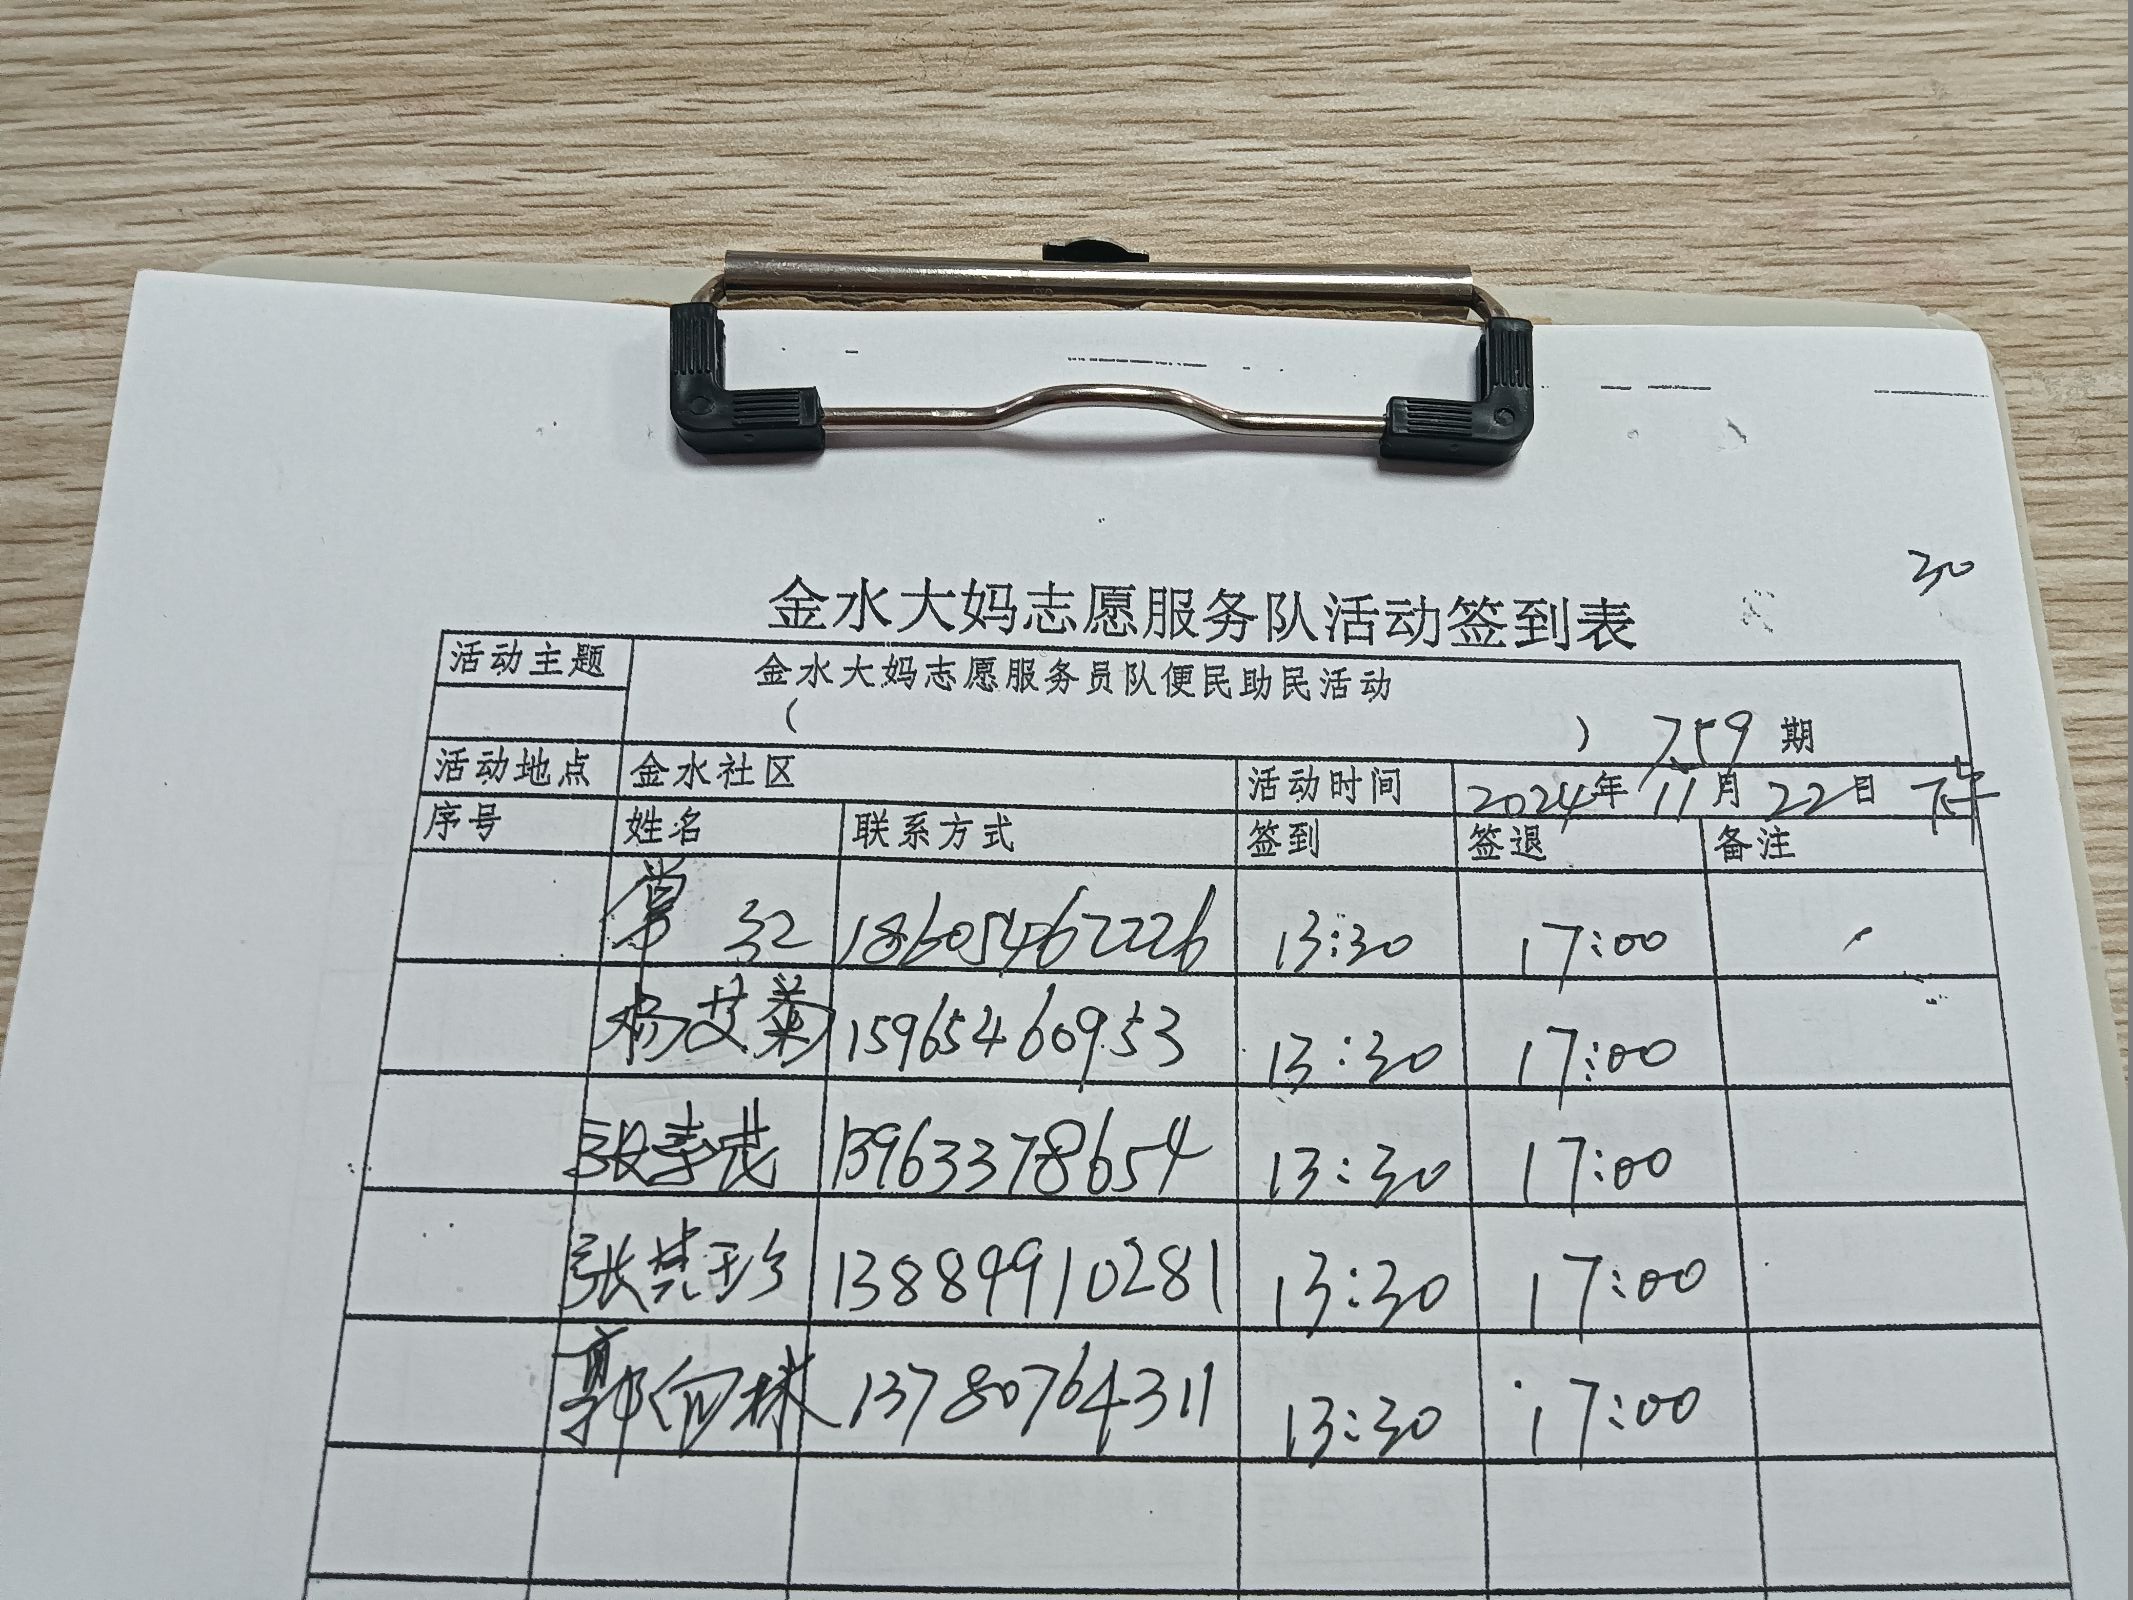 30
金水大妈志愿服务队活动签到表
活动主题 金水大妈志愿服务员队便民助民活动
( ) 759 期
活动地点 金水社区 活动时间 2024年 11月 22日 下午
序号 姓名 联系方式 签到 签退 备注
常红 18605462226 13:30 17:00
杨艾菊 15965460953 13:30 17:00
张 13963378654 13:30 17:00
张 珍 13884910281 13:30 17:00
郭向林 13780764311 13:30 17:00